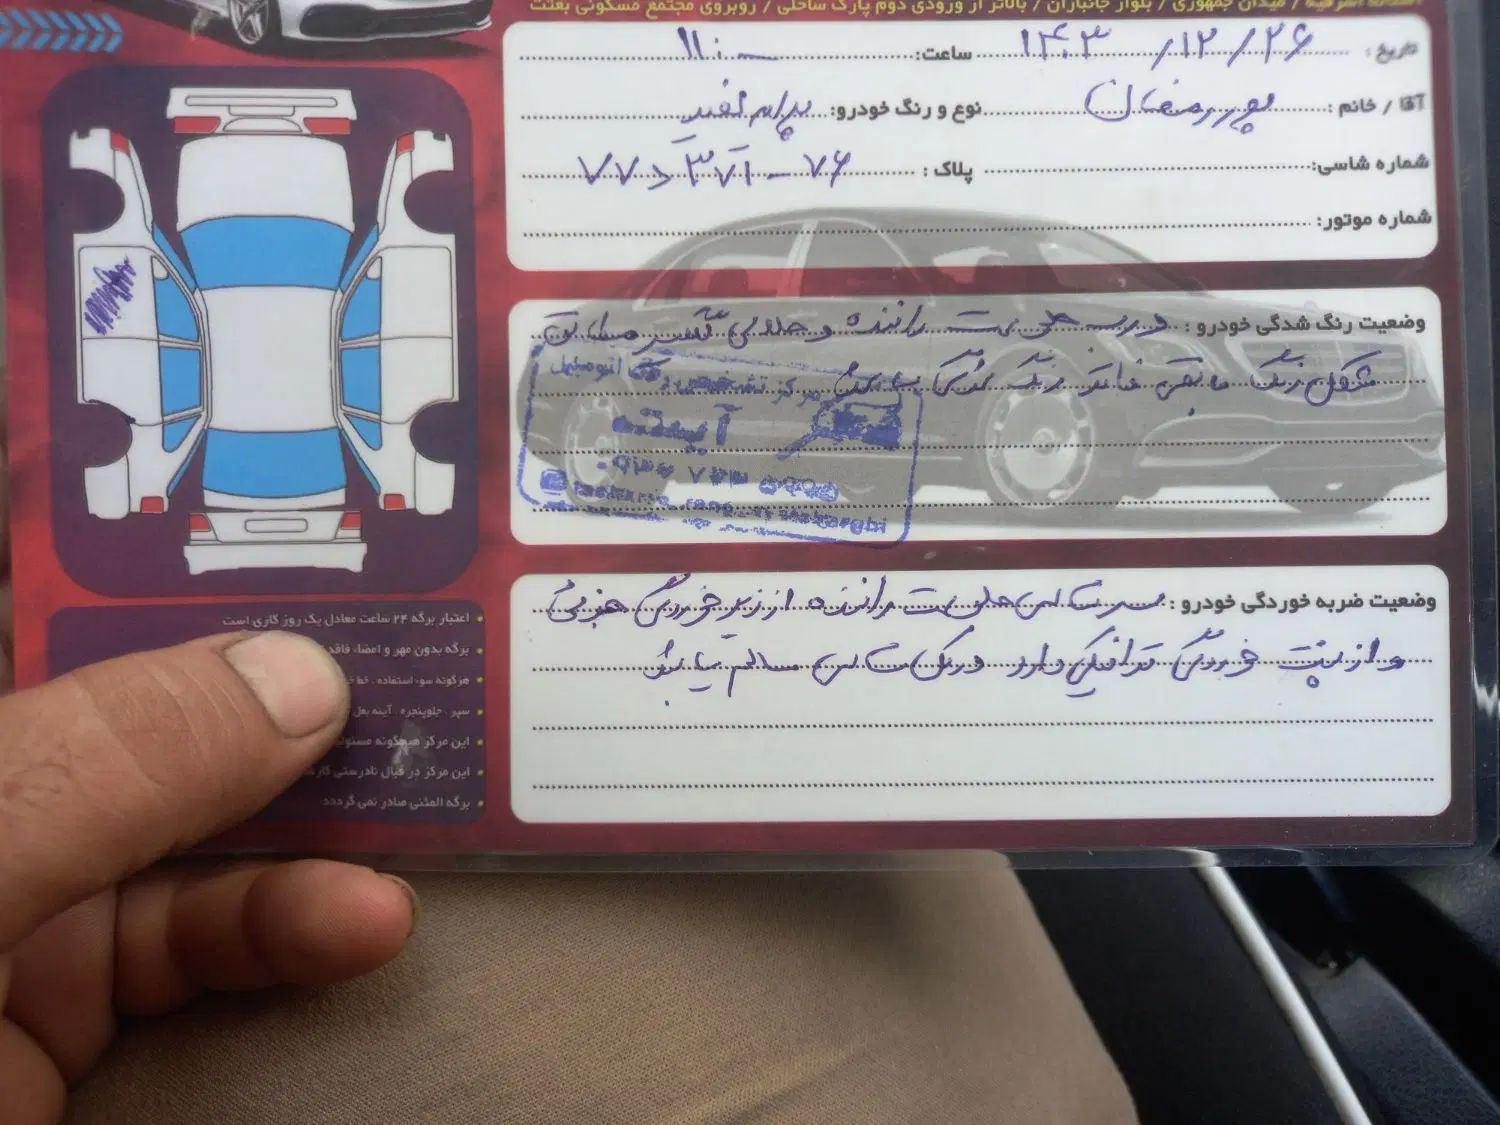 میدان جمهوری / بلوار جانبازان / بالاتر از ورودی دوم پارک ساحلی / روبروی مجتمع مسکونی بعثت
تاریخ: ۱۴۰۳/۱۲/۲۶ ساعت: ۱۱:۰۰
آقا / خانم: پوررمضان نوع و رنگ خودرو: پراید سفید
شماره شاسی: پلاک: ۷۷د۳۷۱-۷۶
شماره موتور:
وضعیت رنگ شدگی خودرو: درب جلو سمت راننده و
مشکل رنگ مابقی فاقد رنگ شدگی میباشد
مرکز تشخیص رنگ اتومبیل
وضعیت ضربه خوردگی خودرو: سر شاسی جلو سمت راننده از زیر خوردگی جزئی
و از پشت خوردگی ترافیکی دارد ورنگ شاسی سالم میباشد
اعتبار برگه ۲۴ ساعت معادل یک روز کاری است
برگه بدون مهر و امضاء فاقد
هرگونه سوء استفاده، خط
سپر، جلوپنجره، آینه بغل
این مرکز هیچگونه مسئولیت
این مرکز در قبال نادرستی
برگه المثنی صادر نمی گردد